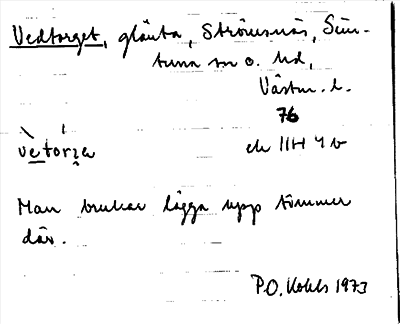 Vedtorget, glänta, Strömsnäs, Sim-
tuna sn o. hd,
Västm. l.
76
ek 11H 4b
Man brukar lägga upp tömmer
där.
P.O. 1973